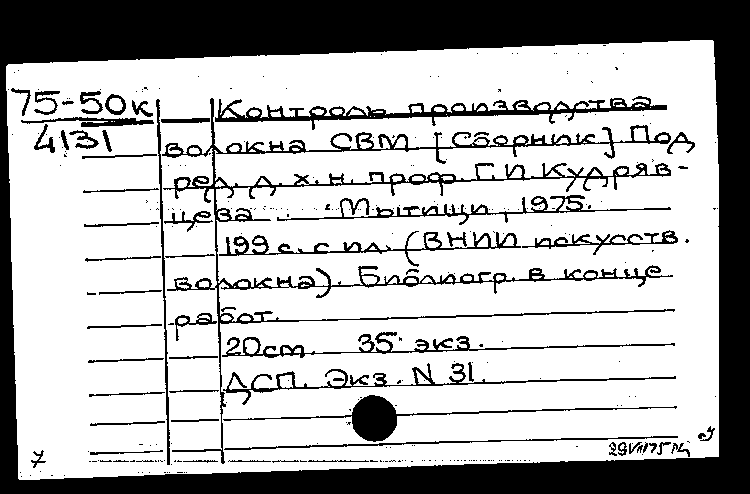 75-50к Контроль производства
4131 волокна СВМ [Сборник] Под
ред. д. х. н. проф. Г.И Кудряв-
цева.. Мытищи, 1975.
199 с. с ил. (ВНИИ искусств.
волокна). Библиогр. в конце
работ.
20см. 35 экз.
ДСП. Экз. N 31.
7